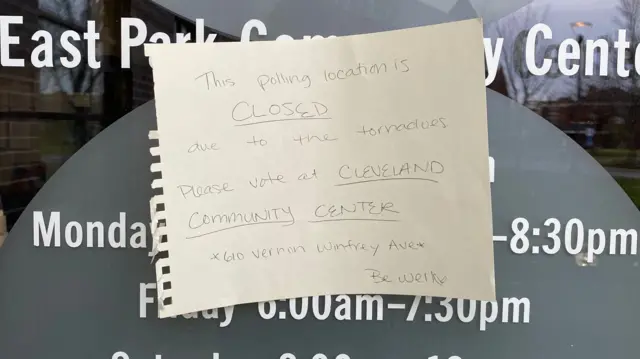 East Park Com y Cente
This polling location is
CLOSED
due to the tornadoes
Please vote at CLEVELAND
COMMUNITY CENTER
*610 Vernon Winfrey Ave*
Be well
Monda –8:30pm
6:00am–7:30pm